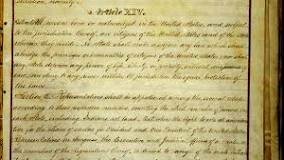 Article XIV.
born or naturalized in the United States, and subject
to the jurisdiction thereof, are citizens of the United States and of the State
wherein they reside. No State shall make or enforce any law which shall
abridge the privileges or immunities of citizens of the United States; nor shall
any State deprive any person of life, liberty, or property, without due process of
law; nor deny to any person within its jurisdiction the equal protection of
the laws.
Section 2. Representatives shall be apportioned among the several States
according to their respective numbers, counting the whole number of persons in
each State, excluding Indians not taxed. But when the right to vote at any
election for the choice of electors for President and Vice President of the United States,
Representatives in Congress, the Executive and Judicial officers of a State, or
the members of the Legislature thereof, is denied to any of the male